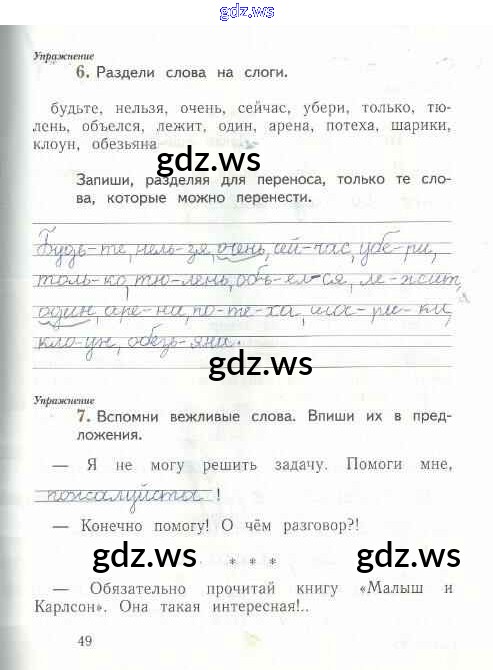 gdz.ws
Упражнение
6. Раздели слова на слоги.
будьте, нельзя, очень, сейчас, убери, только, тю-
лень, объелся, лежит, один, арена, потеха, шарики,
клоун, обезьяна
gdz.ws
Запиши, разделяя для переноса, только те сло-
ва, которые можно перенести.
Будь-те, нель-зя, очень, сей-час, убе-ри,
толь-ко, тю-лень, объ-ел-ся, ле-жит,
один, аре-на, по-те-ха, ша-ри-ки,
кло-ун, обезь-яна.
gdz.ws
Упражнение
7. Вспомни вежливые слова. Впиши их в пред-
ложения.
— Я не могу решить задачу. Помоги мне,
пожалуйста !
— Конечно помогу! О чём разговор?!
gdz.ws * * * gdz.ws
— Обязательно прочитай книгу «Малыш и
Карлсон». Она такая интересная!..
49
gdz.ws